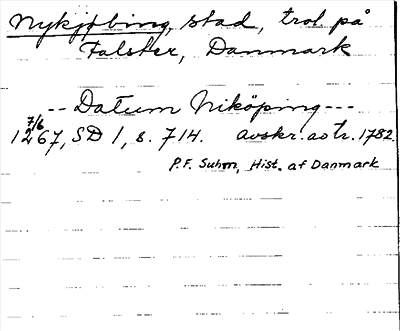 Nykjøbing, stad, trol. på
Falster, Danmark
-- Datum Niköping ---
7/6
1267, SD 1, s. 714. avskr. astr. 1782.
P.F. Suhm, Hist. af Danmark